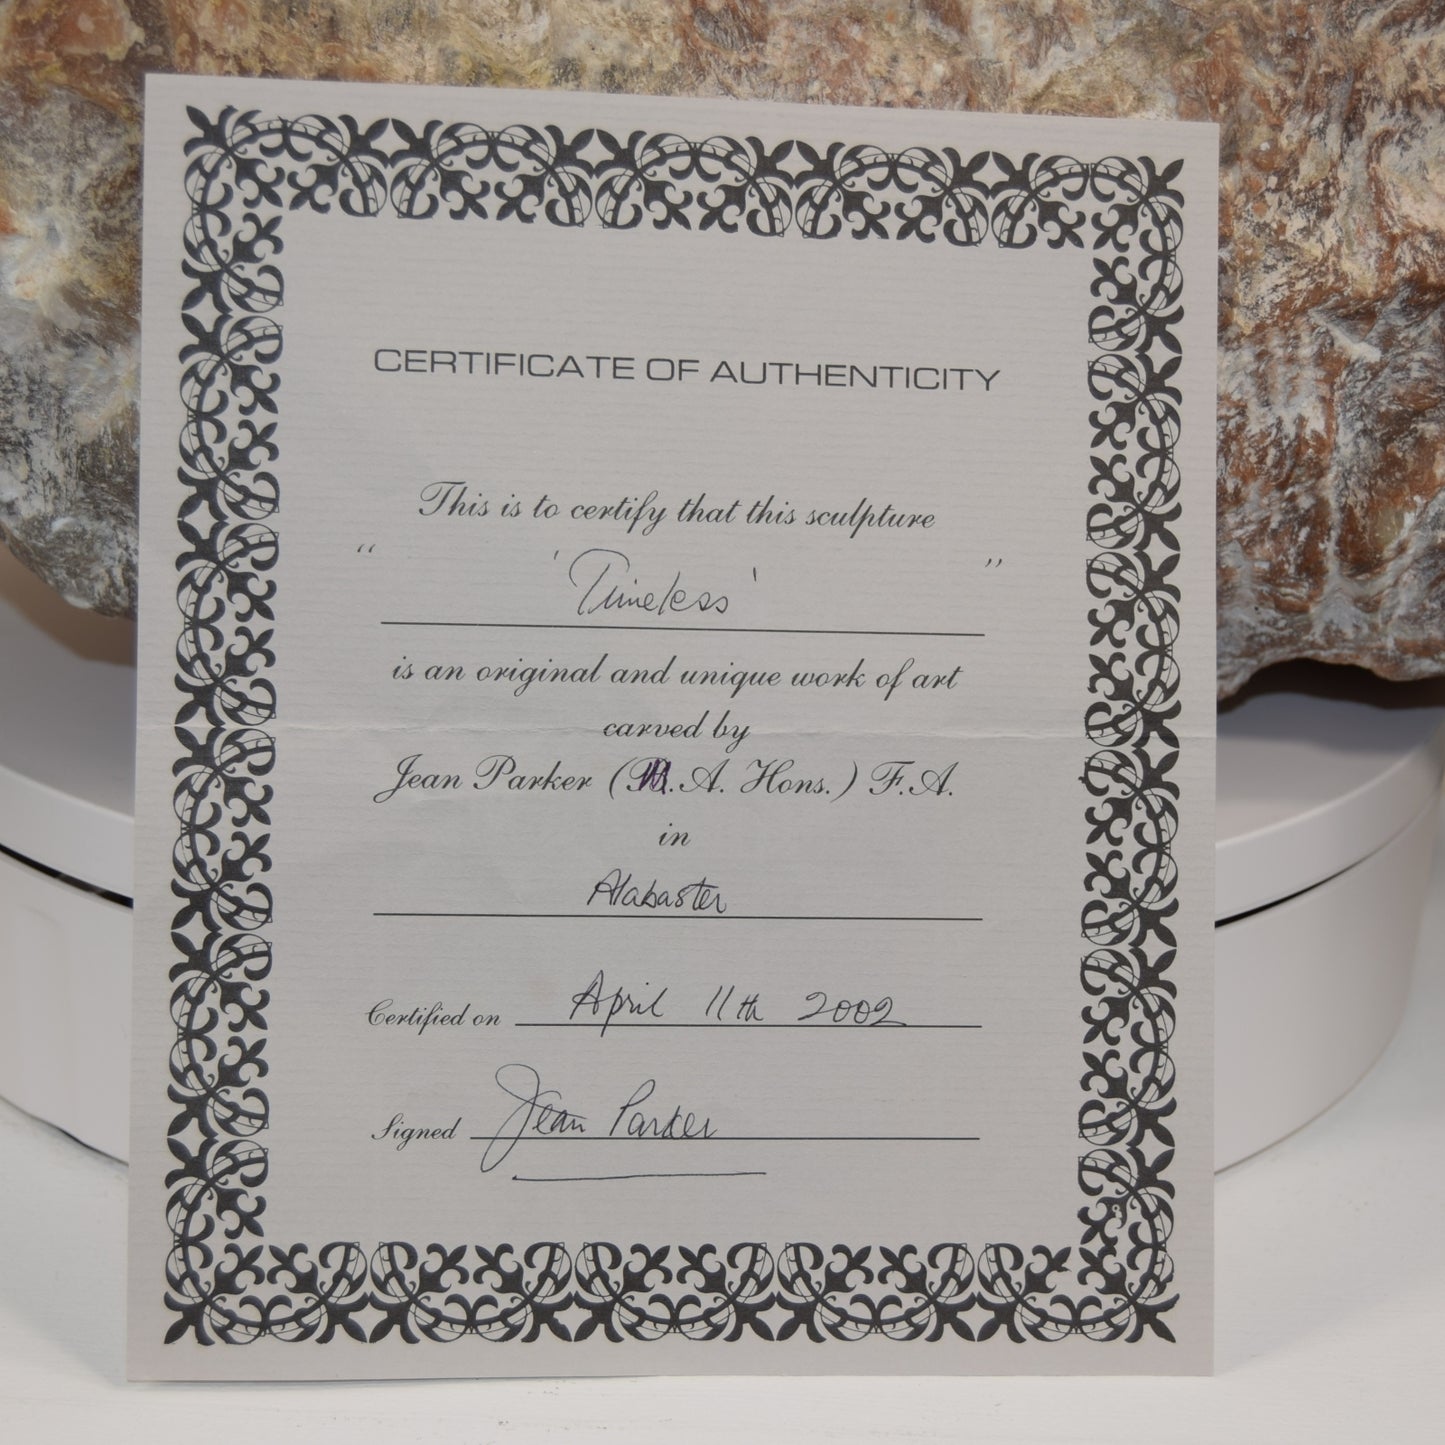 CERTIFICATE OF AUTHENTICITY
This is to certify that this sculpture
" 'Timeless' "
is an original and unique work of art
carved by
Jean Parker (M.A. Hons.) F.A.
in
Alabaster
Certified on April 11th 2002
Signed Jean Parker